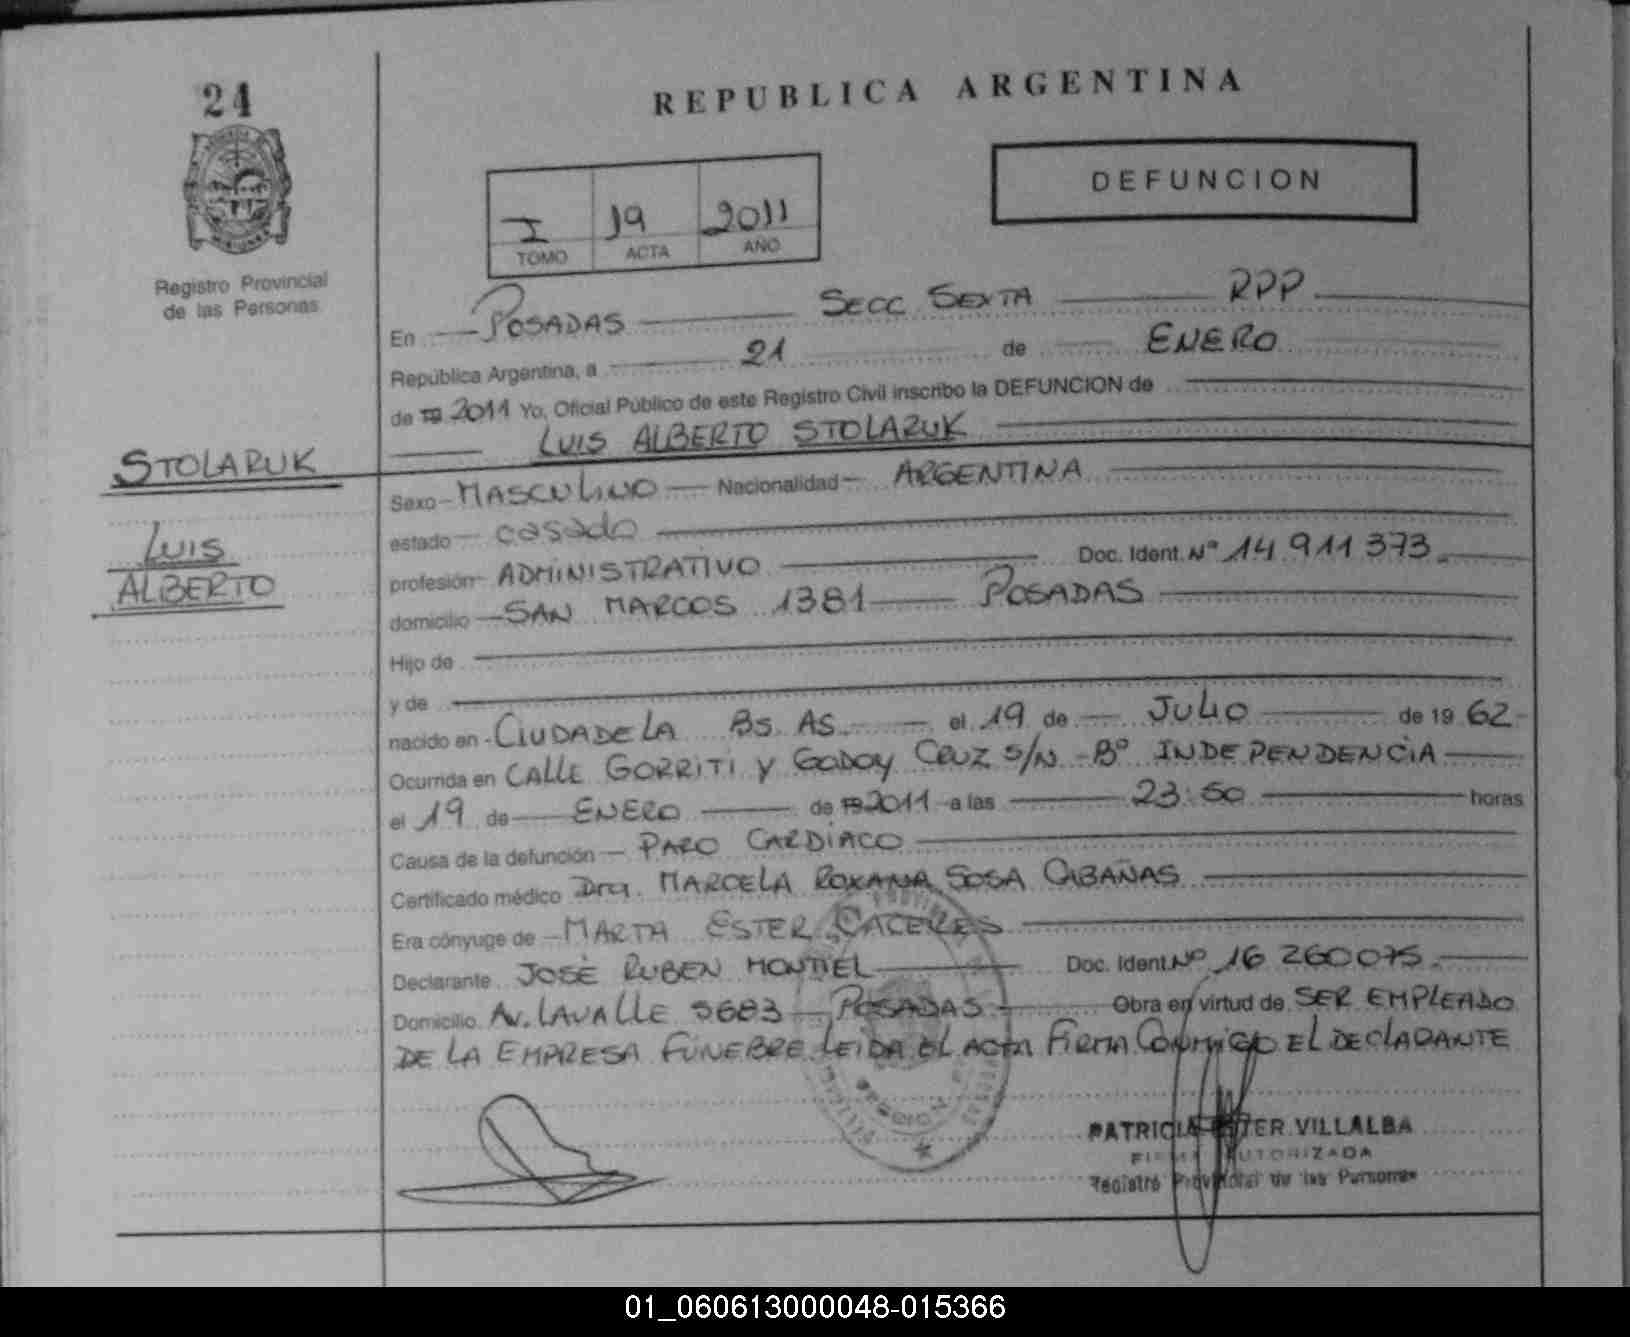 24
REPUBLICA ARGENTINA
DEFUNCION
I 19 2011
TOMO ACTA AÑO
Registro Provincial
de las Personas
En POSADAS SECC SEXTA RPP
República Argentina, a 21 de ENERO
de 19 2011 Yo, Oficial Público de este Registro Civil inscribo la DEFUNCION de
LUIS ALBERTO STOLARUK
STOLARUK
LUIS
ALBERTO
Sexo MASCULINO Nacionalidad ARGENTINA
estado casado
profesión ADMINISTRATIVO Doc. Ident. Nº 14.911.373.
domicilio SAN MARCOS 1381 POSADAS
Hijo de
y de
nacido en CIUDADELA BS. AS. el 19 de JULIO de 19 62
Ocurrida en CALLE GORRITI Y GODOY CRUZ S/N - Bº INDEPENDENCIA
el 19 de ENERO de 19 2011 a las 23:50 horas
Causa de la defunción PARO CARDIACO
Certificado médico Dra. MARCELA ROXANA SOSA CABAÑAS
Era cónyuge de MARTA ESTER CACERES
Declarante JOSÉ RUBEN MONTIEL Doc. Ident. Nº 16 260075.
Domicilio AV. LAVALLE 5683 POSADAS Obra en virtud de SER EMPLEADO
DE LA EMPRESA FUNEBRE. LEIDA EL ACTA FIRMA CONMIGO EL DECLARANTE
PATRICIA ESTER VILLALBA
FIRMA AUTORIZADA
Registro Provincial de las Personas
01_060613000048-015366